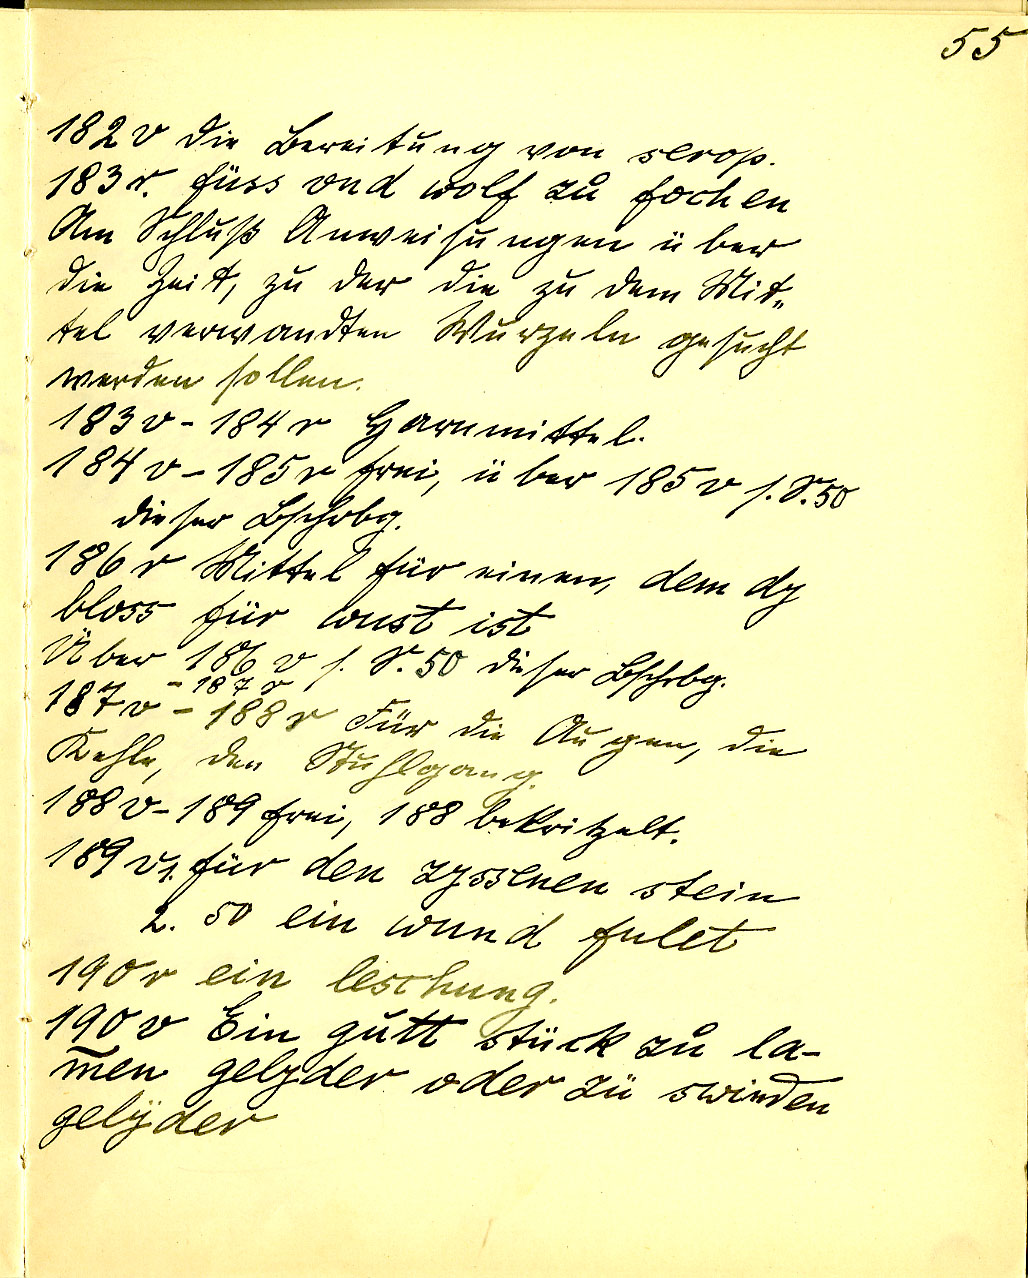 55
182v die Bereitung von scrop.
183r. füss vnd wolf zů fochen
Am Schluß Anweisungen über
die Zeit, zu der die zu dem Mit-
tel verwandten Wurzeln gesucht
werden sollen.
183v-184r Harnmittel.
184v-185r frei, über 185v s. S. 50
dieser Bschrbg.
186r Mittel für einen, dem dz
bloss für wust ist
Über 186v s. S. 50 dieser Bschrbg.
-187r
187v-188r Für die Augen, die
Kehle, den Stuhlgang.
188v-189 frei, 188 bekritzelt.
189v 1. für den zyssenen stein
2. so ein wund fulet
190r ein leschung.
190v Ein gutt stück zů la-
m̄en gelyder oder zü swinden
gelÿder